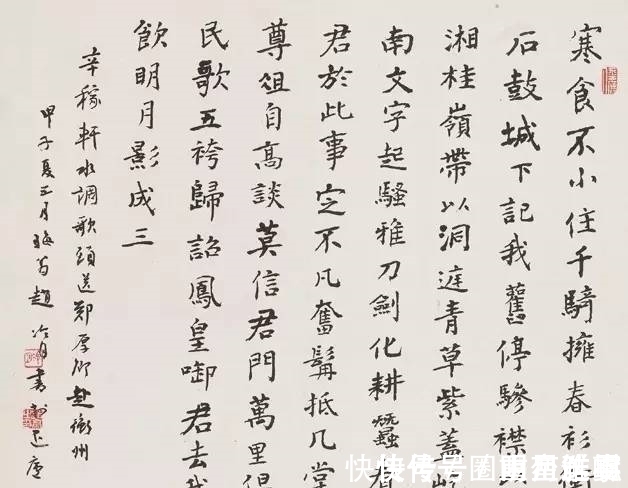 寒食不小住千騎擁春衫衡
石鼓城下記我舊停驂襟以
湘桂嶺帶以洞庭青草紫蓋屹
南文字起騷雅刀劍化耕蠶看
君於此事定不凡奮髯抵几堂
尊俎自高談莫信君門萬里但
民歌五袴歸詔鳳皇啣君去我
飲明月影成三
辛稼軒水調歌頭送鄭厚卿赴衡州
甲子夏五月
趙冷月書